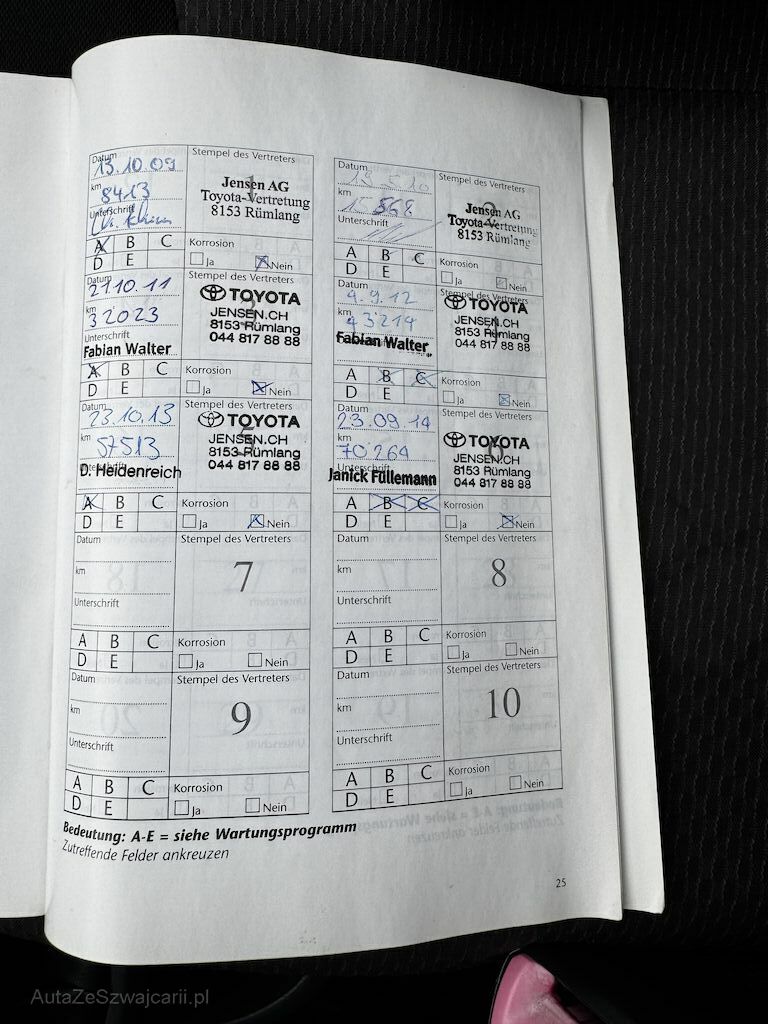 Datum
13.10.09
km
8413
Unterschrift
Stempel des Vertreters
1
Jensen AG
Toyota-Vertretung
8153 Rümlang
A B C
D E
Korrosion
Ja Nein
Datum
km
15 868
Unterschrift
Stempel des Vertreters
2
Jensen AG
Toyota-Vertretung
8153 Rümlang
A B C
D E
Korrosion
Ja Nein
Datum
21 10.11
km
32023
Unterschrift
Fabian Walter
Stempel des Vertreters
3
TOYOTA
JENSEN.CH
8153 Rümlang
044 817 88 88
A B C
D E
Korrosion
Ja Nein
Datum
4.9.12
km
43214
Unterschrift
Fabian Walter
Stempel des Vertreters
4
TOYOTA
JENSEN.CH
8153 Rümlang
044 817 88 88
A B C
D E
Korrosion
Ja Nein
Datum
23.10.13
km
57513
Unterschrift
D. Heidenreich
Stempel des Vertreters
5
TOYOTA
JENSEN.CH
8153 Rümlang
044 817 88 88
A B C
D E
Korrosion
Ja Nein
Datum
23.09.14
km
70'264
Unterschrift
Janick Füllemann
Stempel des Vertreters
6
TOYOTA
JENSEN.CH
8153 Rümlang
044 817 88 88
A B C
D E
Korrosion
Ja Nein
Datum
km
Unterschrift
Stempel des Vertreters
7
A B C
D E
Korrosion
Ja Nein
Datum
km
Unterschrift
Stempel des Vertreters
8
A B C
D E
Korrosion
Ja Nein
Datum
km
Unterschrift
Stempel des Vertreters
9
A B C
D E
Korrosion
Ja Nein
Datum
km
Unterschrift
Stempel des Vertreters
10
A B C
D E
Korrosion
Ja Nein
Bedeutung: A-E = siehe Wartungsprogramm
Zutreffende Felder ankreuzen
25
AutaZeSzwajcarii.pl